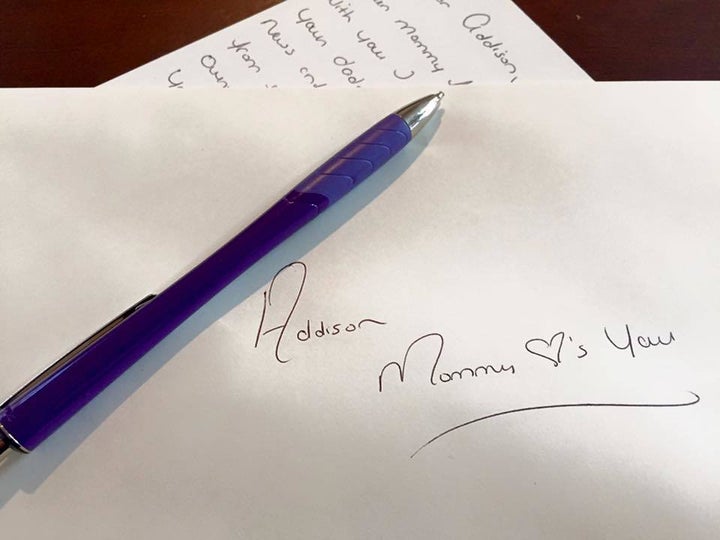 Addison,
mommy!
with you
your dad
news and
from
own
Addison
Mommy ♡'s You